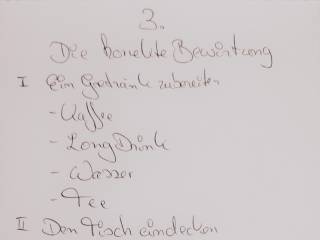 3.
Die korrekte Bewirtung
I Ein Getränk zubereiten
- Kaffee
- LongDrink
- Wasser
- Tee
II Den Tisch eindecken